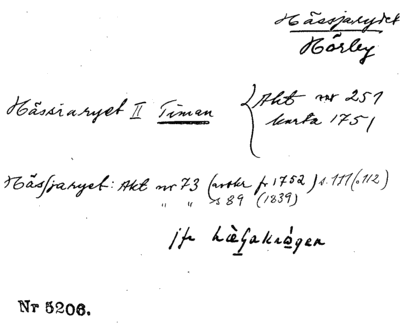 Hässjaryet
Hörby
Hässiaryet II Timan { Akt nr 251
karta 1751
Hässjaryet: Akt nr 73 (protkr fr 1752) s. 111 (o. 112)
" " s 89 (1839)
jfr
Nr 5206.